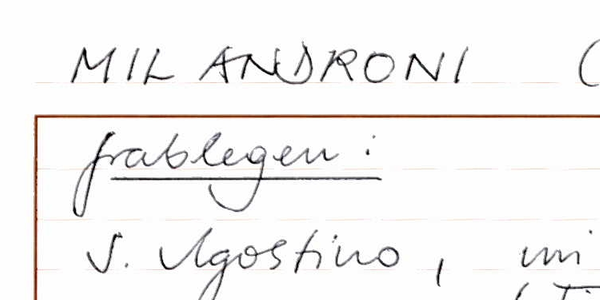 MIL ANDRONI (
Grablegen :
S. Agostino, im